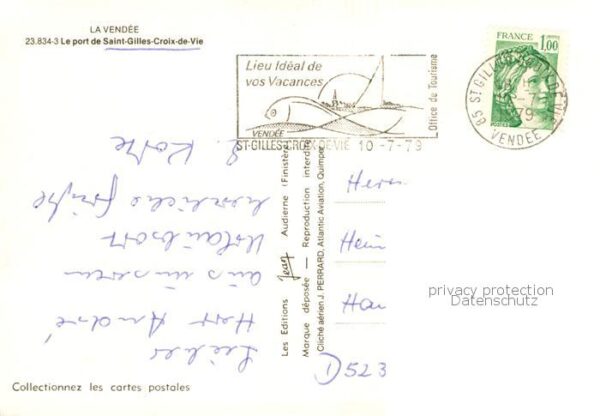 LA VENDÉE
23.834-3 Le port de Saint-Gilles-Croix-de-Vie
Lieu Idéal de
vos Vacances
VENDÉE
Office du Tourisme
ST-GILLES-CROIX-DE-VIE 10-7-79
FRANCE
1,00
85 ST GILLES CROIX DE VIE
VENDÉE
Lieber
Herr André
aus unserem
Urlaubsort
herzliche Grüße
Les Editions Jean Audierne (Finistère)
Marque déposée — Reproduction interdite
Cliché aérien J. PERRARD, Atlantic Aviation, Quimper
Herrn
Hein
Han
D 523
privacy protection
Datenschutz
Collectionnez les cartes postales